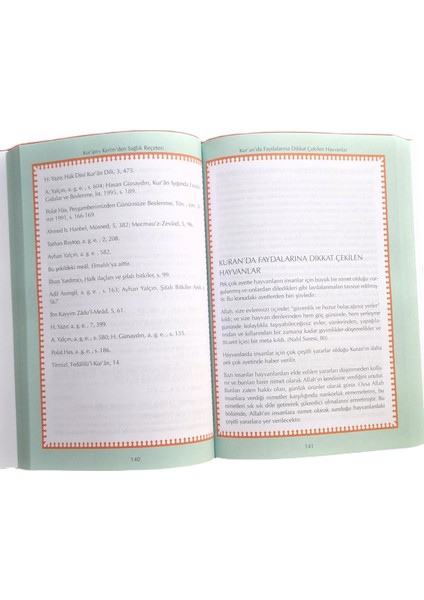 Kur'an-ı Kerim'den Sağlık Reçetesi
H. Yazır, Hak Dini Kur'ân Dili, 3, 473.
A. Yalçın, a. g. e., s. 604; Hasan Günaydın, Kur'an Işığında Faydalı
Gıdalar ve Beslenme, İst. 1995, s. 189.
Polat Has, Peygamberimizden Günümüze Beslenme, Timaş Yay.
1991, s. 166-169.
Ahmed b. Hanbel, Müsned, 5, 382; Mecmau'z-Zevâid, 5, 96.
Turhan Baytop, a. g. e., 2, 208.
Ayhan Yalçın, a. g. e., 582.
Bu şekildeki meâl, Elmalılı'ya aittir.
İlhan Yardımcı, Halk ilaçları ve şifalı bitkiler, s. 99.
Adil Asımgil, a. g. e., s. 163; Ayhan Yalçın, Şifalı Bitkiler Ans. s.
İbn Kayyim Zâdu'l-Meâd, 5, 61.
H. Yazır, a. g. e., 7, 399.
A. Yalçın, a. g. e., s. 580; H. Günaydın, a. g. e., s. 135.
Polat Has, a. g. e., s. 186.
Tirmizî, Fedâilü'l-Kur'ân, 14.
140
Kur'an'da Faydalarına Dikkat Çekilen Hayvanlar
KURAN'DA FAYDALARINA DİKKAT ÇEKİLEN
HAYVANLAR
Pek çok ayette hayvanların insanlar için büyük bir nimet olduğu vur-
gulanmış ve onlardan diledikleri gibi faydalanmaları tavsiye edilmiş-
tir. Bu konudaki ayetlerden biri şöyledir:
Allah, size evlerinizi (içinde) "güvenlik ve huzur bulacağınız yerler"
kıldı; ve size hayvan derilerinden hem göç gününde, hem yerleşme
gününde kolaylıkla taşıyabileceğiniz evler; yünlerinden, yapağıla-
rından ve kıllarından bir zamana kadar giyimlikler-döşemelikler ve
ticaret için bir meta kıldı. (Nahl Suresi, 80)
Hayvanlarda insanlar için çok çeşitli yararlar olduğu Kuran'ın daha
pek çok ayetinde haber verilir.
Bazı insanlar hayvanlardan elde edilen yararları hiç düşünmeden kulla-
nır ve bunları birer nimet olarak, Allah'ın kendilerine verdiğini unuturlar.
Bunları zaten hakkı olan, günlük ürünler olarak görür. Oysa Allah
insanlara verdiği nimetler karşılığında nankörlük etmemelerini, bu
nimetleri sık sık dile getirerek şükredici olmalarını emretmiştir. Bu
bölümde, Allah'ın insanlara nimet olarak sunduğu hayvanlardaki
çeşitli yararlara yer verilecektir.
141